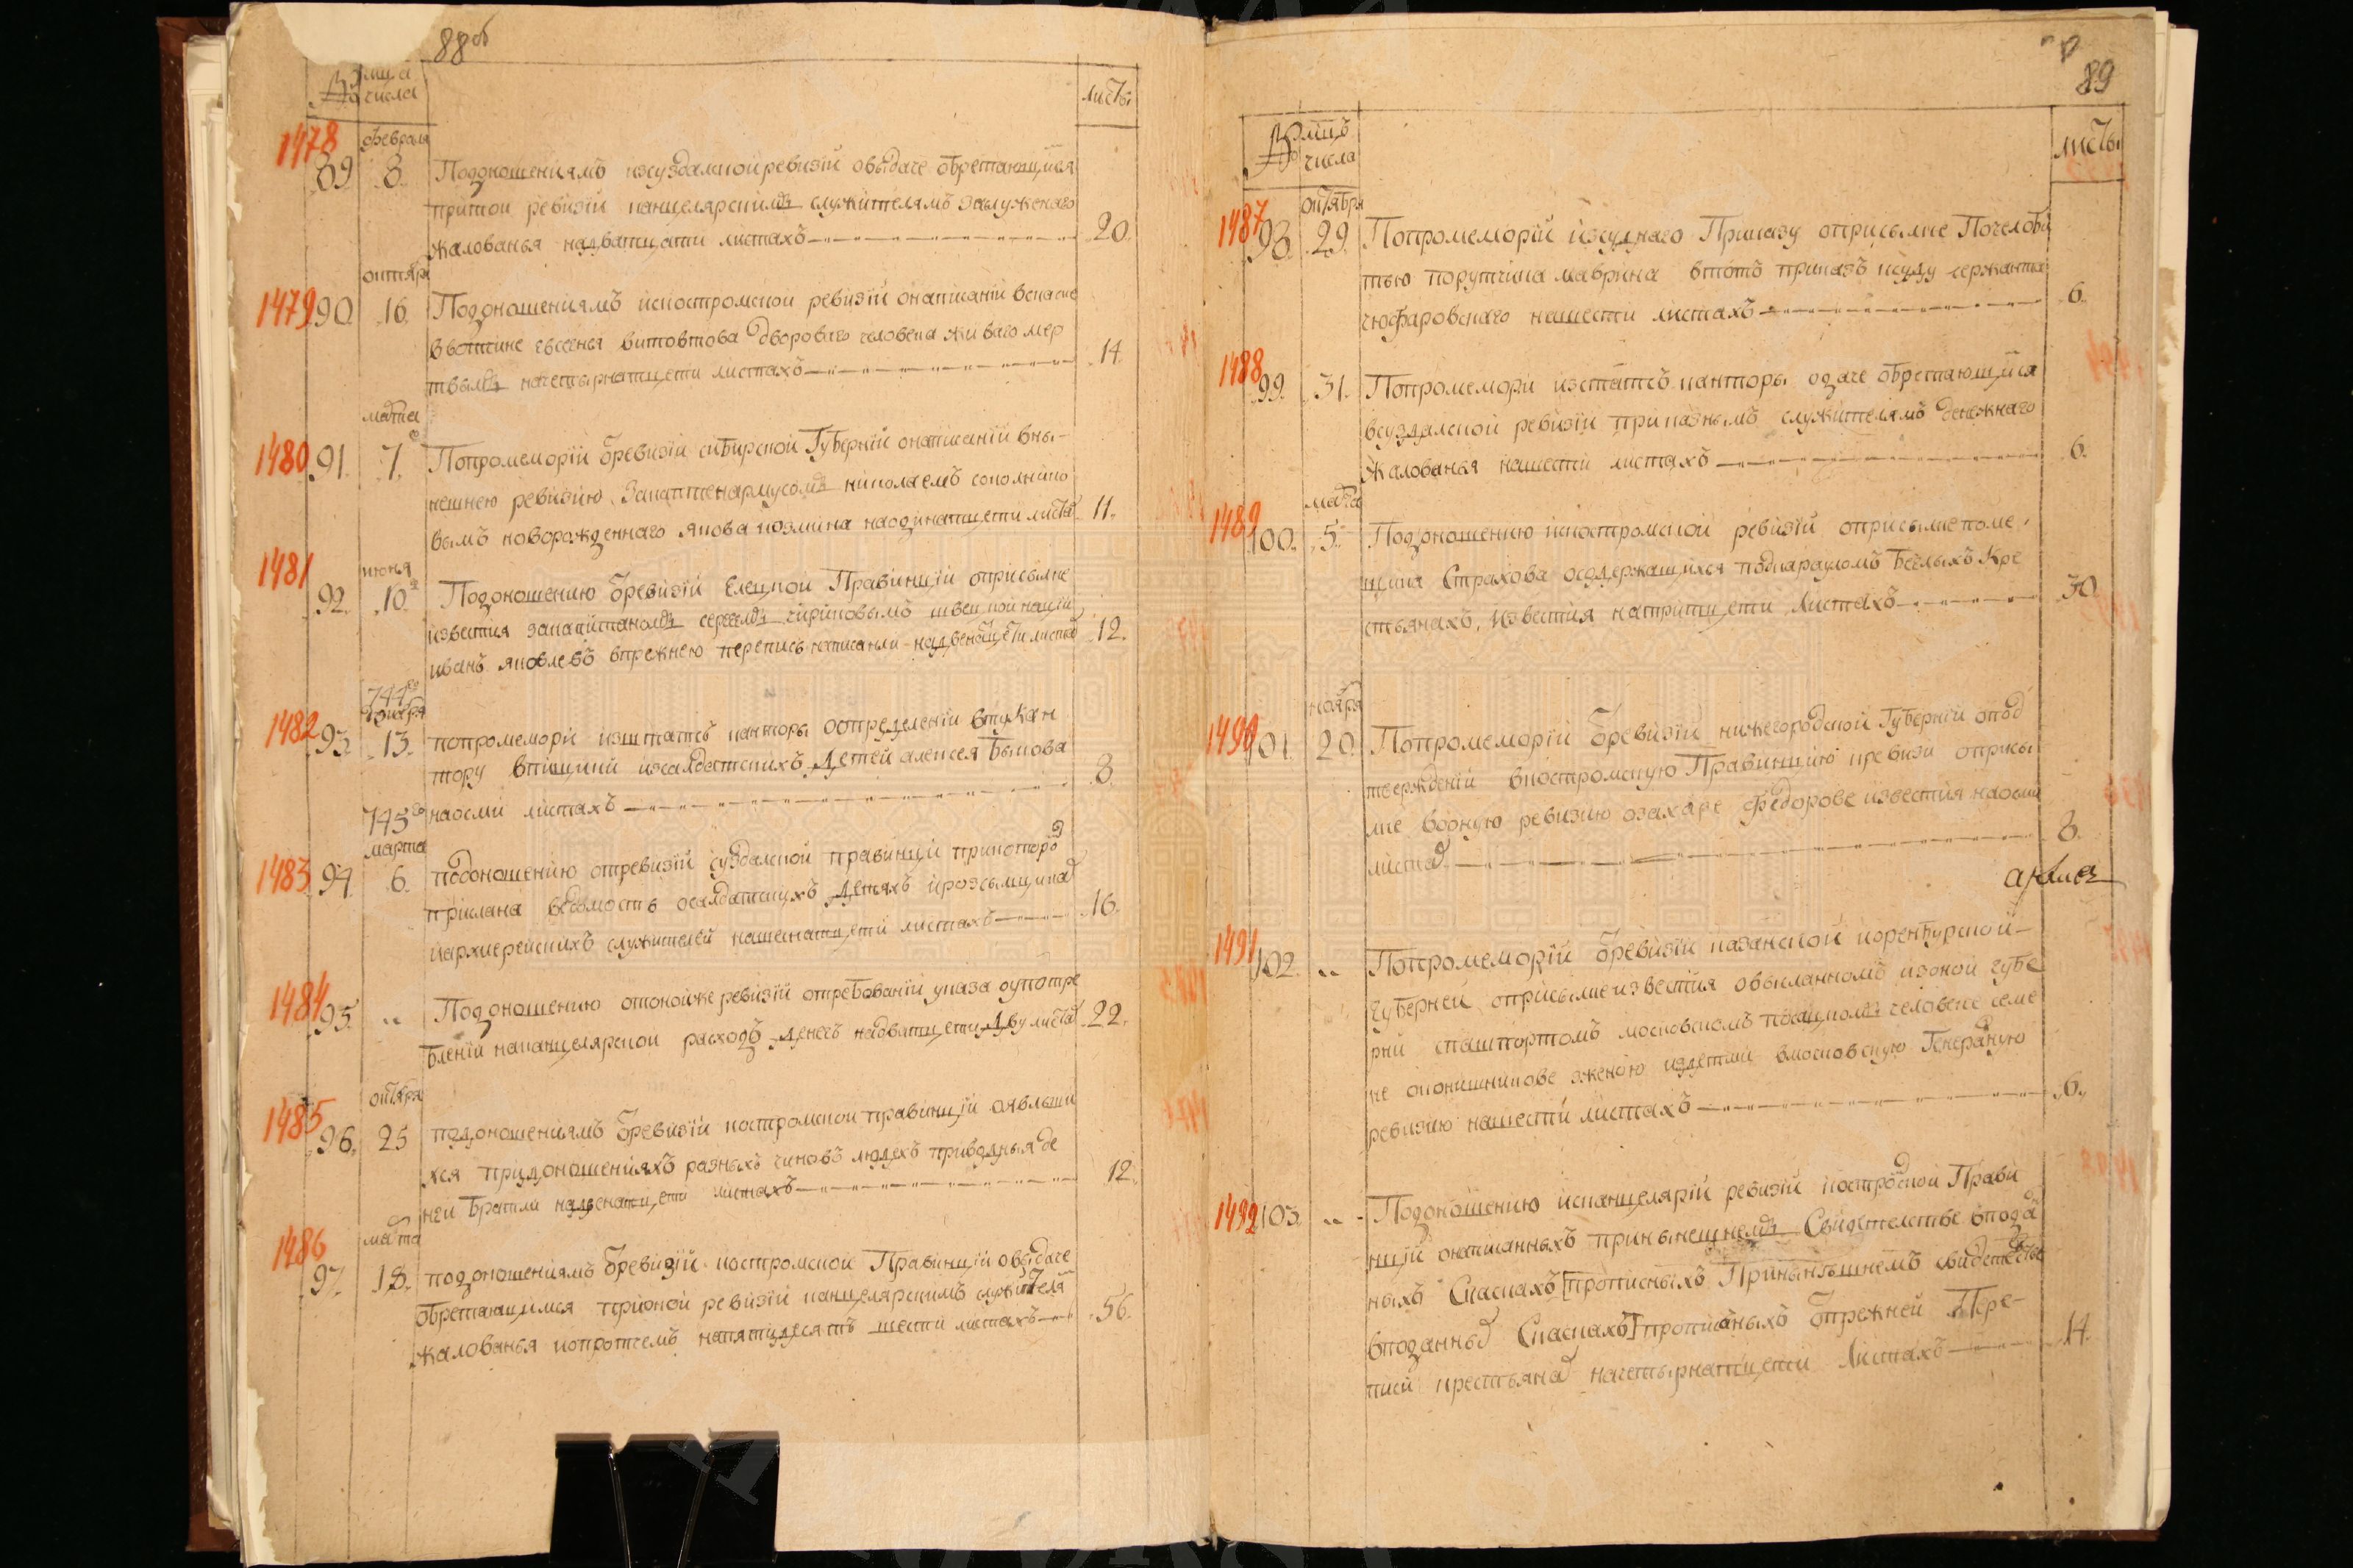 88об
№ мца
числа
листы
1478
февраля
89 8. Подоношениямъ изсуздалской ревизїи овыдаче обретающимся
притои ревизїи канцелярскимъ служителямъ заслуженого
жалованья надватцати листахъ 20.
октября
1479 90 16. Подоношениямъ искостромской ревизїи онаписанїи вспаске
ввотчине евсевья витовтова дворового человека живаго мер
твымъ начетырнатцети листахъ 14.
марта
1480 91. 7. Попромеморїи ѿревизїи сибирской Губернїи онаписанїи вны-
нешнею ревизию закаптенармусомъ николаемъ
вымъ новорожденнаго якова козмина наодинатцети листах 11.
1481 июня
92. 10. Подоношению ѿревизїи Елецкой Правинцїи оприсылке
известия закапитаномъ сергеемъ чириковымъ швецкой нацїи
иванъ яковлевъ впрежнею перепись написанли надвенатцети листах 12.
744го
генваря
1482 93. 13. попромемори изштатсъ канторы оопределенїи втуКан
тору вписцы исалдатскихъ детей алексея Быкова
наосми листахъ 8.
745го
марта
1483 94. 6. подоношению отревизїи суздалской правинцїи прикоторо
прислана ведомость осалдатцкихъ детяхъ
иархиерейскихъ служителей нашеснатцети листахъ 16.
1484 95. „ Подоношению отонойже ревизїи отребованїи указа оупотре
бленїи наканцелярской расходъ денегъ надватцети дву листах 22.
октября
1485 96. 25 подоношениямъ ѿревизїи костромской правинцїи оявлши
хся придоношенияхъ разныхъ чиновъ людехъ приводныя де
ней братли надвенатцети листахъ 12.
марта
1486 97. 18. подоношениямъ ѿревизїи костромской Правинцїи овыдаче
обретающимся прионой ревизїи канцелярскимъ служителя
жалованья ипротчемъ напятидесятъ шести листахъ 56.
89
№ мцъ
числа
листы
октября
1487 98. 29. Попромеморїи изсуднаго Приказу оприсылке Почелоби
тью порутчика маврина втотъ приказъ ксуду сержанта
чюфаровскаго нашести листахъ 6.
1488
99. 31. Попромемори изстатсъ канторы одаче обретающимся
всуздалской ревизїи приказнымъ служителямъ денежнаго
жалованья нашести листахъ 6.
марта
1489 100. 5. Подоношению искостромской ревизїи оприсылке поме
щика Страхова осодержащихся подкарауломъ беглыхъ Кре
стьянахъ. Известия натритцети Листахъ 30
ноября
1490 101 20. Попромеморїи ѿревизїи нижегородской Губернїи опод
твержденїи вкостромскую Правинцию кревизи оприсы
лке воѻную ревизию озахаре Федорове известия наосми
листах 8.
1491 102. „ Попромеморїи ѿревизїи казанской иоренбурской
губерней оприсылке известия овысланномъ изоной губе
рни спашпортомъ московскомъ посацкомъ человеке семе
не оконишникове зженою издетми вмосковскую Генералную
ревизию нашести листахъ 6.
1492 103. „ Подоношению исканцелярїи ревизїи костромской Прави
нцїи онаписанныхъ принынешнемъ Свидетелстве впода
ныхъ Сказкахъ [прописныхъ Принынѣшнемъ свидетелстве
вподанных Сказкахъ] прописаныхъ ѿпрежней Пере-
писи крестьянах начетырнатцети Листахъ 14.